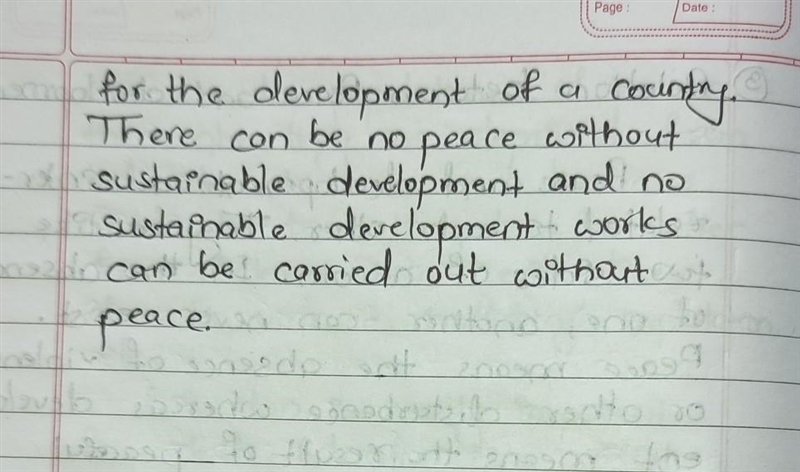 Page :
Date :
for the development of a country.
There can be no peace without
sustainable development and no
sustainable development works
can be carried out without
peace.